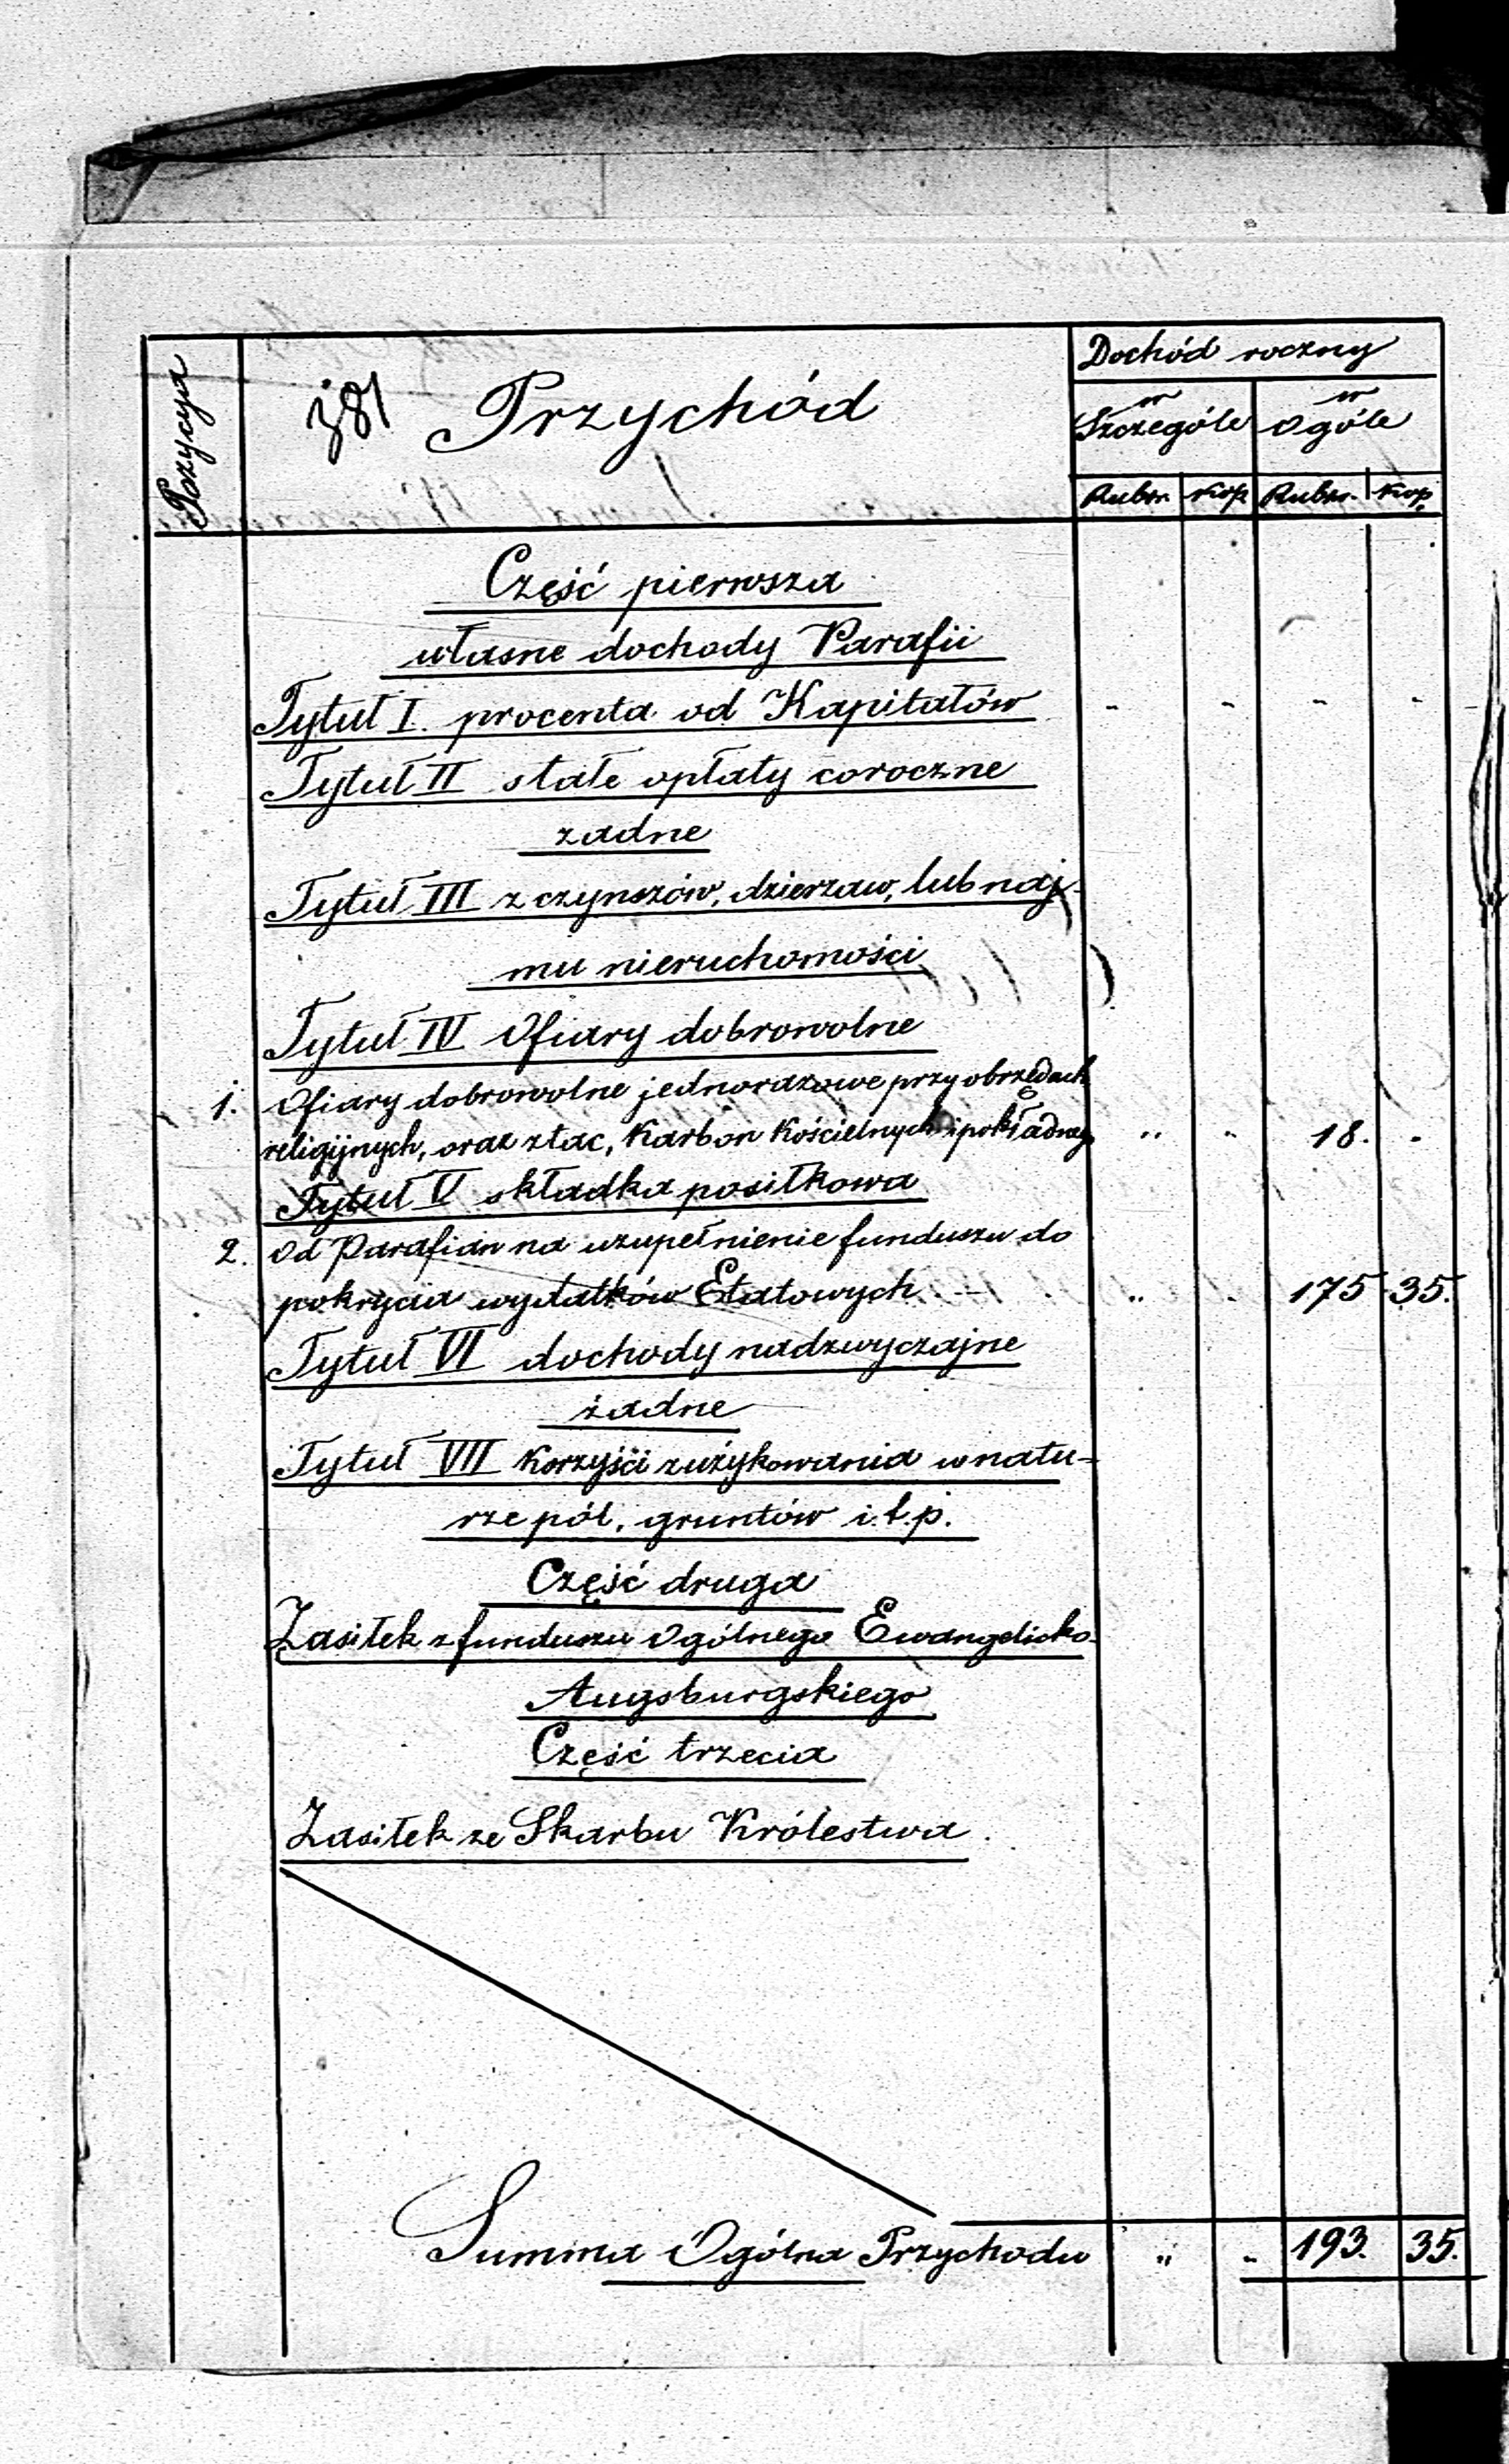 Pozycya
381 Przychód
Dochód roczny
w Szczególe
w Ogóle
Rubsr. Kop Rubsr. Kop.
Część pierwsza
własne dochody Parafii
Tytuł I. procenta od Kapitałów - - - -
Tytuł II stałe opłaty coroczne
żadne
Tytuł III z czynszów, dzierżaw, lub naj-
mu nieruchomości
Tytuł IV Ofiary dobrowolne
1. Ofiary dobrowolne jednorazowe przy obrzędach
religijnych, oraz z tac, Karbon Kościelnych i pokładnego „ - 18. -
Tytuł V składka posiłkowa
2. Od Parafian na uzupełnienie funduszu do
pokrycia wydatków Etatowych „ - 175 35.
Tytuł VI dochody nadzwyczajne
żadne
Tytuł VII Korzyści zużykowania w natu-
rze pól, gruntów i.t.p.
Część druga
Zasiłek z funduszu Ogólnego Ewangelicko-
Augsburgskiego
Część trzecia
Zasiłek ze Skarbu Królestwa.
Summa Ogólna Przychodu „ - 193. 35.